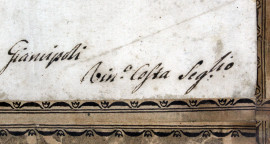 Giancipoli
Vin.º Costa Seg.rio